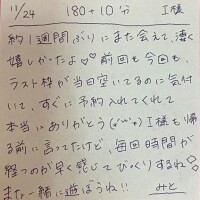 11/24 180+10分 I様
約1週間ぶりにまた会えて、凄く
嬉しかったよ♡♡ 前回も今回も、
ラスト枠が当日空いてるのに気付
いて、すぐに予約入れてくれて
本当にありがとう(*'▽'*) I様も帰
る前に言ってたけど、毎回時間が
経つのが早く感じてびっくりするね
また一緒に遊ぼうね!! みと